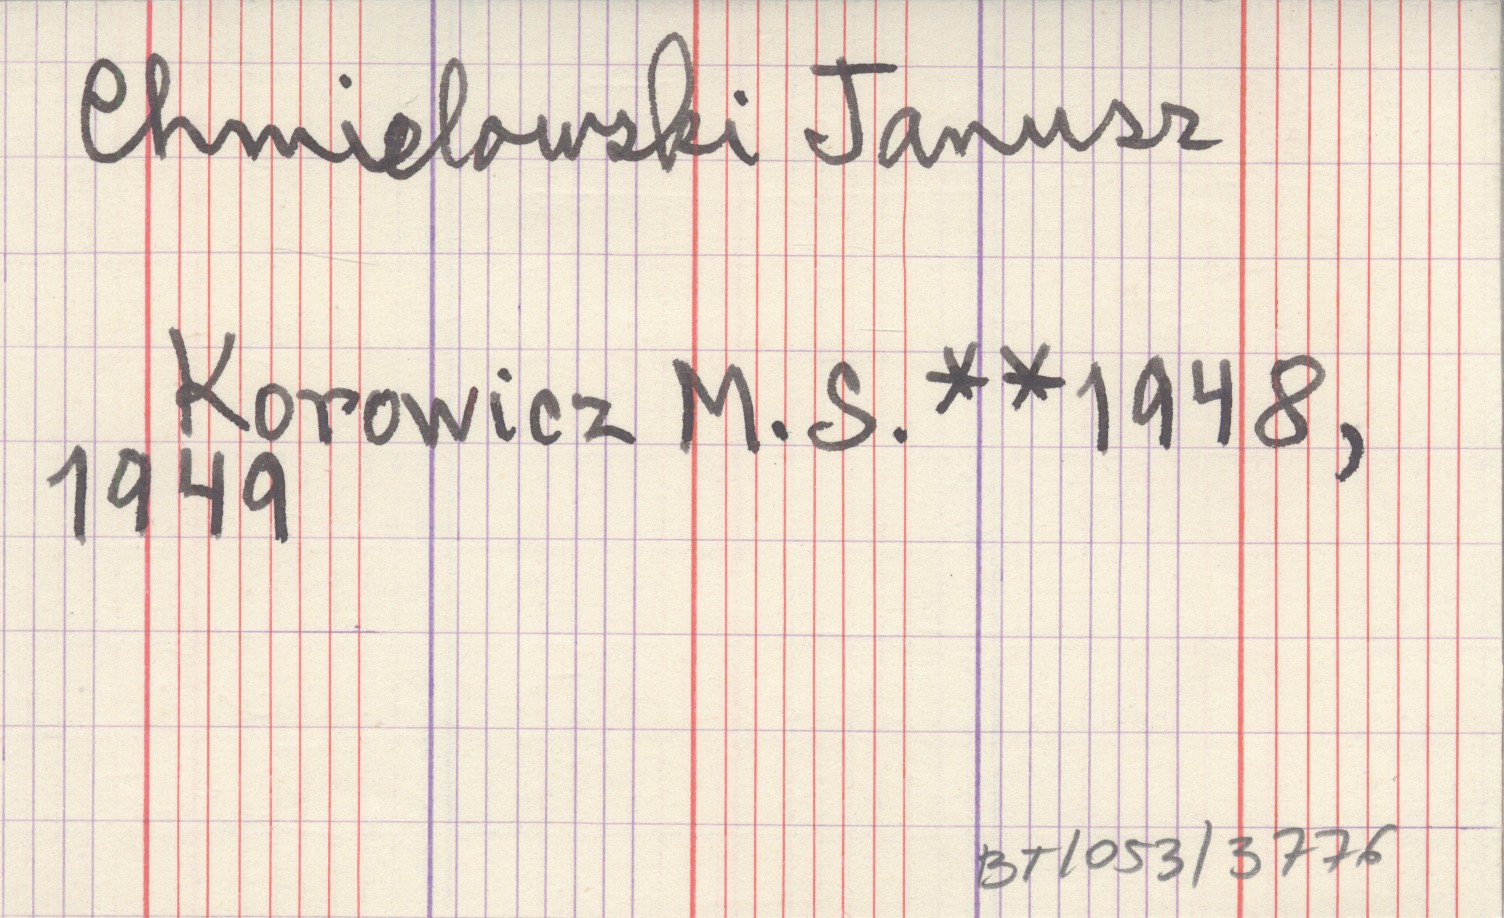 Chmielowski Janusz
Korowicz M.S.**1948,
1949
BT/053/3776